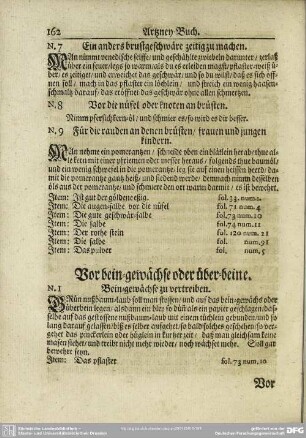 162 Artzney Buch.
N. 7 Ein anders brustgeschwäre zeitig zu machen.
MAn nimmt venedische seiffe/ und geschählte zwiebeln darunter/ zerlast
über ein feuer/
und erweichet das geschwär/ und so du wilst/ daß es sich öff-
nen soll/ mach in das pflaster ein löchlein/ und streich ein wenig haasen-
schmaltz darauf/ das eröffnet das geschwär ohne allen schmertzen.
N. 8 Vor die nüsel oder knoten an brüsten.
Nimm persichkern-öl/ und schmier es/ so wird es dir besser.
N. 9 Für die rauden an denen brüsten/ frauen und jungen
kindern.
MAn nehme ein pomerantzen/ schneide oben ein blätlein herab/ thue al-
le kern mit einer pfriemen oder messer heraus/ folgends thue baumöl/
und ein wenig schwefel darein/ setze es auf einen heissen heerd/
die pomerantze gantz heiß/ und siedend werde: Darnach nimm desselben
öls aus der pomerantze/ und schmiere den ort warm darmit/ es ist bewehrt.
Item: Ist gut der goldene essig. fol. 33. num 2.
Item: Die augen-salbe vor die nüsel fol. 71 num. 4
Item: Die gute geschwär-salbe fol. 73 num. 10
Item: Die salbe fol. 74 num. 11
Item: Der rothe stein fol. 120 num. 21
Item: Die salbe fol. num. 91
Item: Das pulver fol. num. 5
Vor bein-gewächse oder über-beine.
N. 1 Bein-gewächse zu vertreiben.
GRün nußbaum-laub soll man stossen/ und auf das bein-gewächs oder
überbein legen: alsdann ein bley so dünn als ein papier geschlagen/ dassel-
be auf das gestossene nußbaum-laub mit einem tüchlein gebunden/ und so
lang darauf gelassen/ biß es selber aufgehet/ so bald solches geschehen/ so ver-
gehet es wieder ein pörtzlein oder höglein in der haut/ daß man gleichsam keine
masen siehet/ und treibt nicht mehr wieder/ noch wächset mehr. Soll gar
bewehrt seyn.
Item: Das pflaster fol. 73 num. 10
Vor